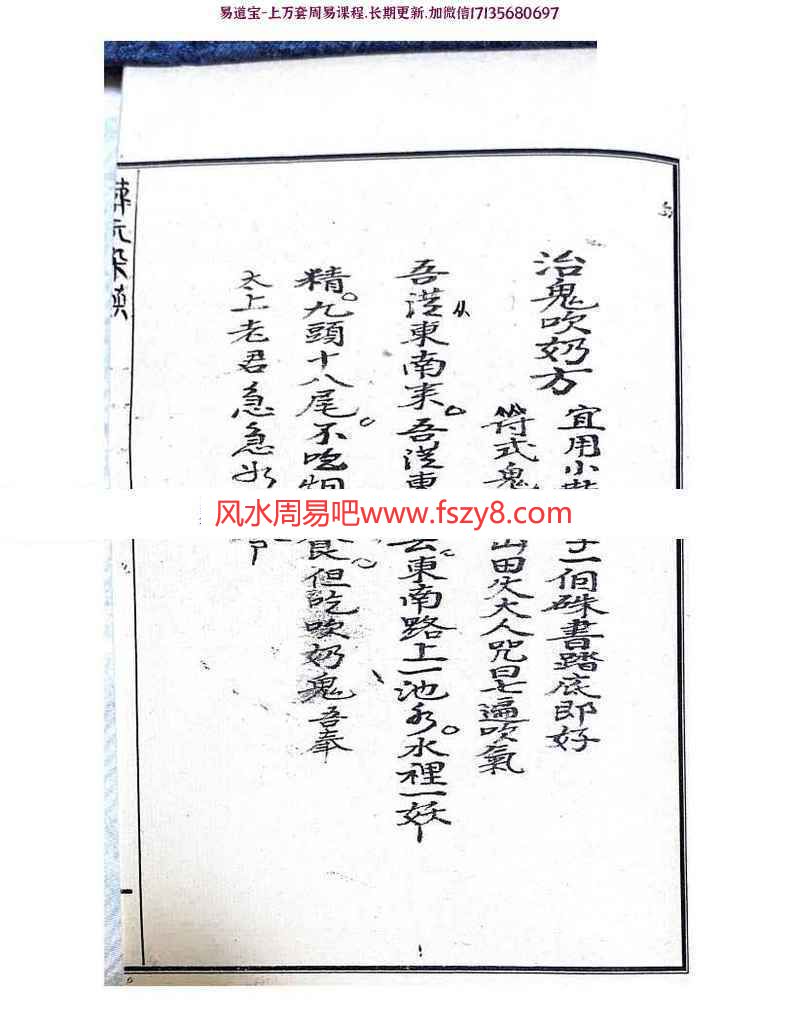 易道宝-上万套周易课程.长期更新.加微信17135680697
治鬼吹奶方
宜用小 一個硃書踏底即好
符式鬼 山田火大人咒曰七遍吹氣
吾從東南来。吾從東 去。東南路上一池水。水裡一妖
从
精。九頭十八尾。不吃 食。但吃吹奶鬼吾奉
太上老君急急
风水周易吧www.fszy8.com